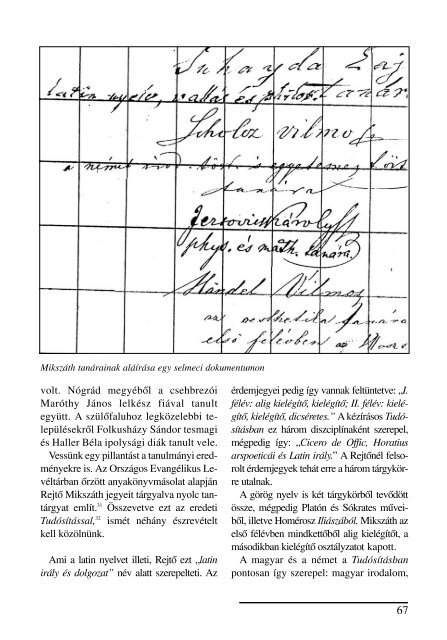 Suhayda Laj
latin nyelv, vallás és philos. tanár.
Scholcz Vilmos
a német irod. tört. és egyetemes tört
tanára
Jezsovics Károly
phys. és math. tanára.
Händel Vilmos
az aesthetika tanára
első félévben az
Mikszáth tanárainak aláírása egy selmeci dokumentumon
volt. Nógrád megyéből a csehbrezói
Maróthy János lelkész fiával tanult
együtt. A szülőfaluhoz legközelebbi te-
lepülésekről Folkusházy Sándor tesmagi
és Haller Béla ipolysági diák tanult vele.
Vessünk egy pillantást a tanulmányi ered-
ményekre is. Az Országos Evangélikus Le-
véltárban őrzött anyakönyvmásolat alapján
Rejtő Mikszáth jegyeit tárgyalva nyolc tan-
tárgyat említ.31 Összevetve ezt az eredeti
Tudósítással,32 ismét néhány észrevételt
kell közölnünk.
Ami a latin nyelvet illeti, Rejtő ezt „latin
irály és dolgozat” név alatt szerepelteti. Az
érdemjegyei pedig így vannak feltüntetve: „I.
félév: alig kielégítő, kielégítő; II. félév: kielé-
gítő, kielégítő, dicséretes.” A kézírásos Tudó-
sításban ez három diszciplínaként szerepel,
mégpedig így: „Cicero de Offic, Horatius
arspoeticái és Latin irály.” A Rejtőnél felso-
rolt érdemjegyek tehát erre a három tárgykör-
re utalnak.
A görög nyelv is két tárgykörből tevődött
össze, mégpedig Platón és Sókrates művei-
ből, illetve Homérosz Iliászából. Mikszáth az
első félévben mindkettőből alig kielégítőt, a
másodikban kielégítő osztályzatot kapott.
A magyar és a német a Tudósításban
pontosan így szerepel: magyar irodalom,
67